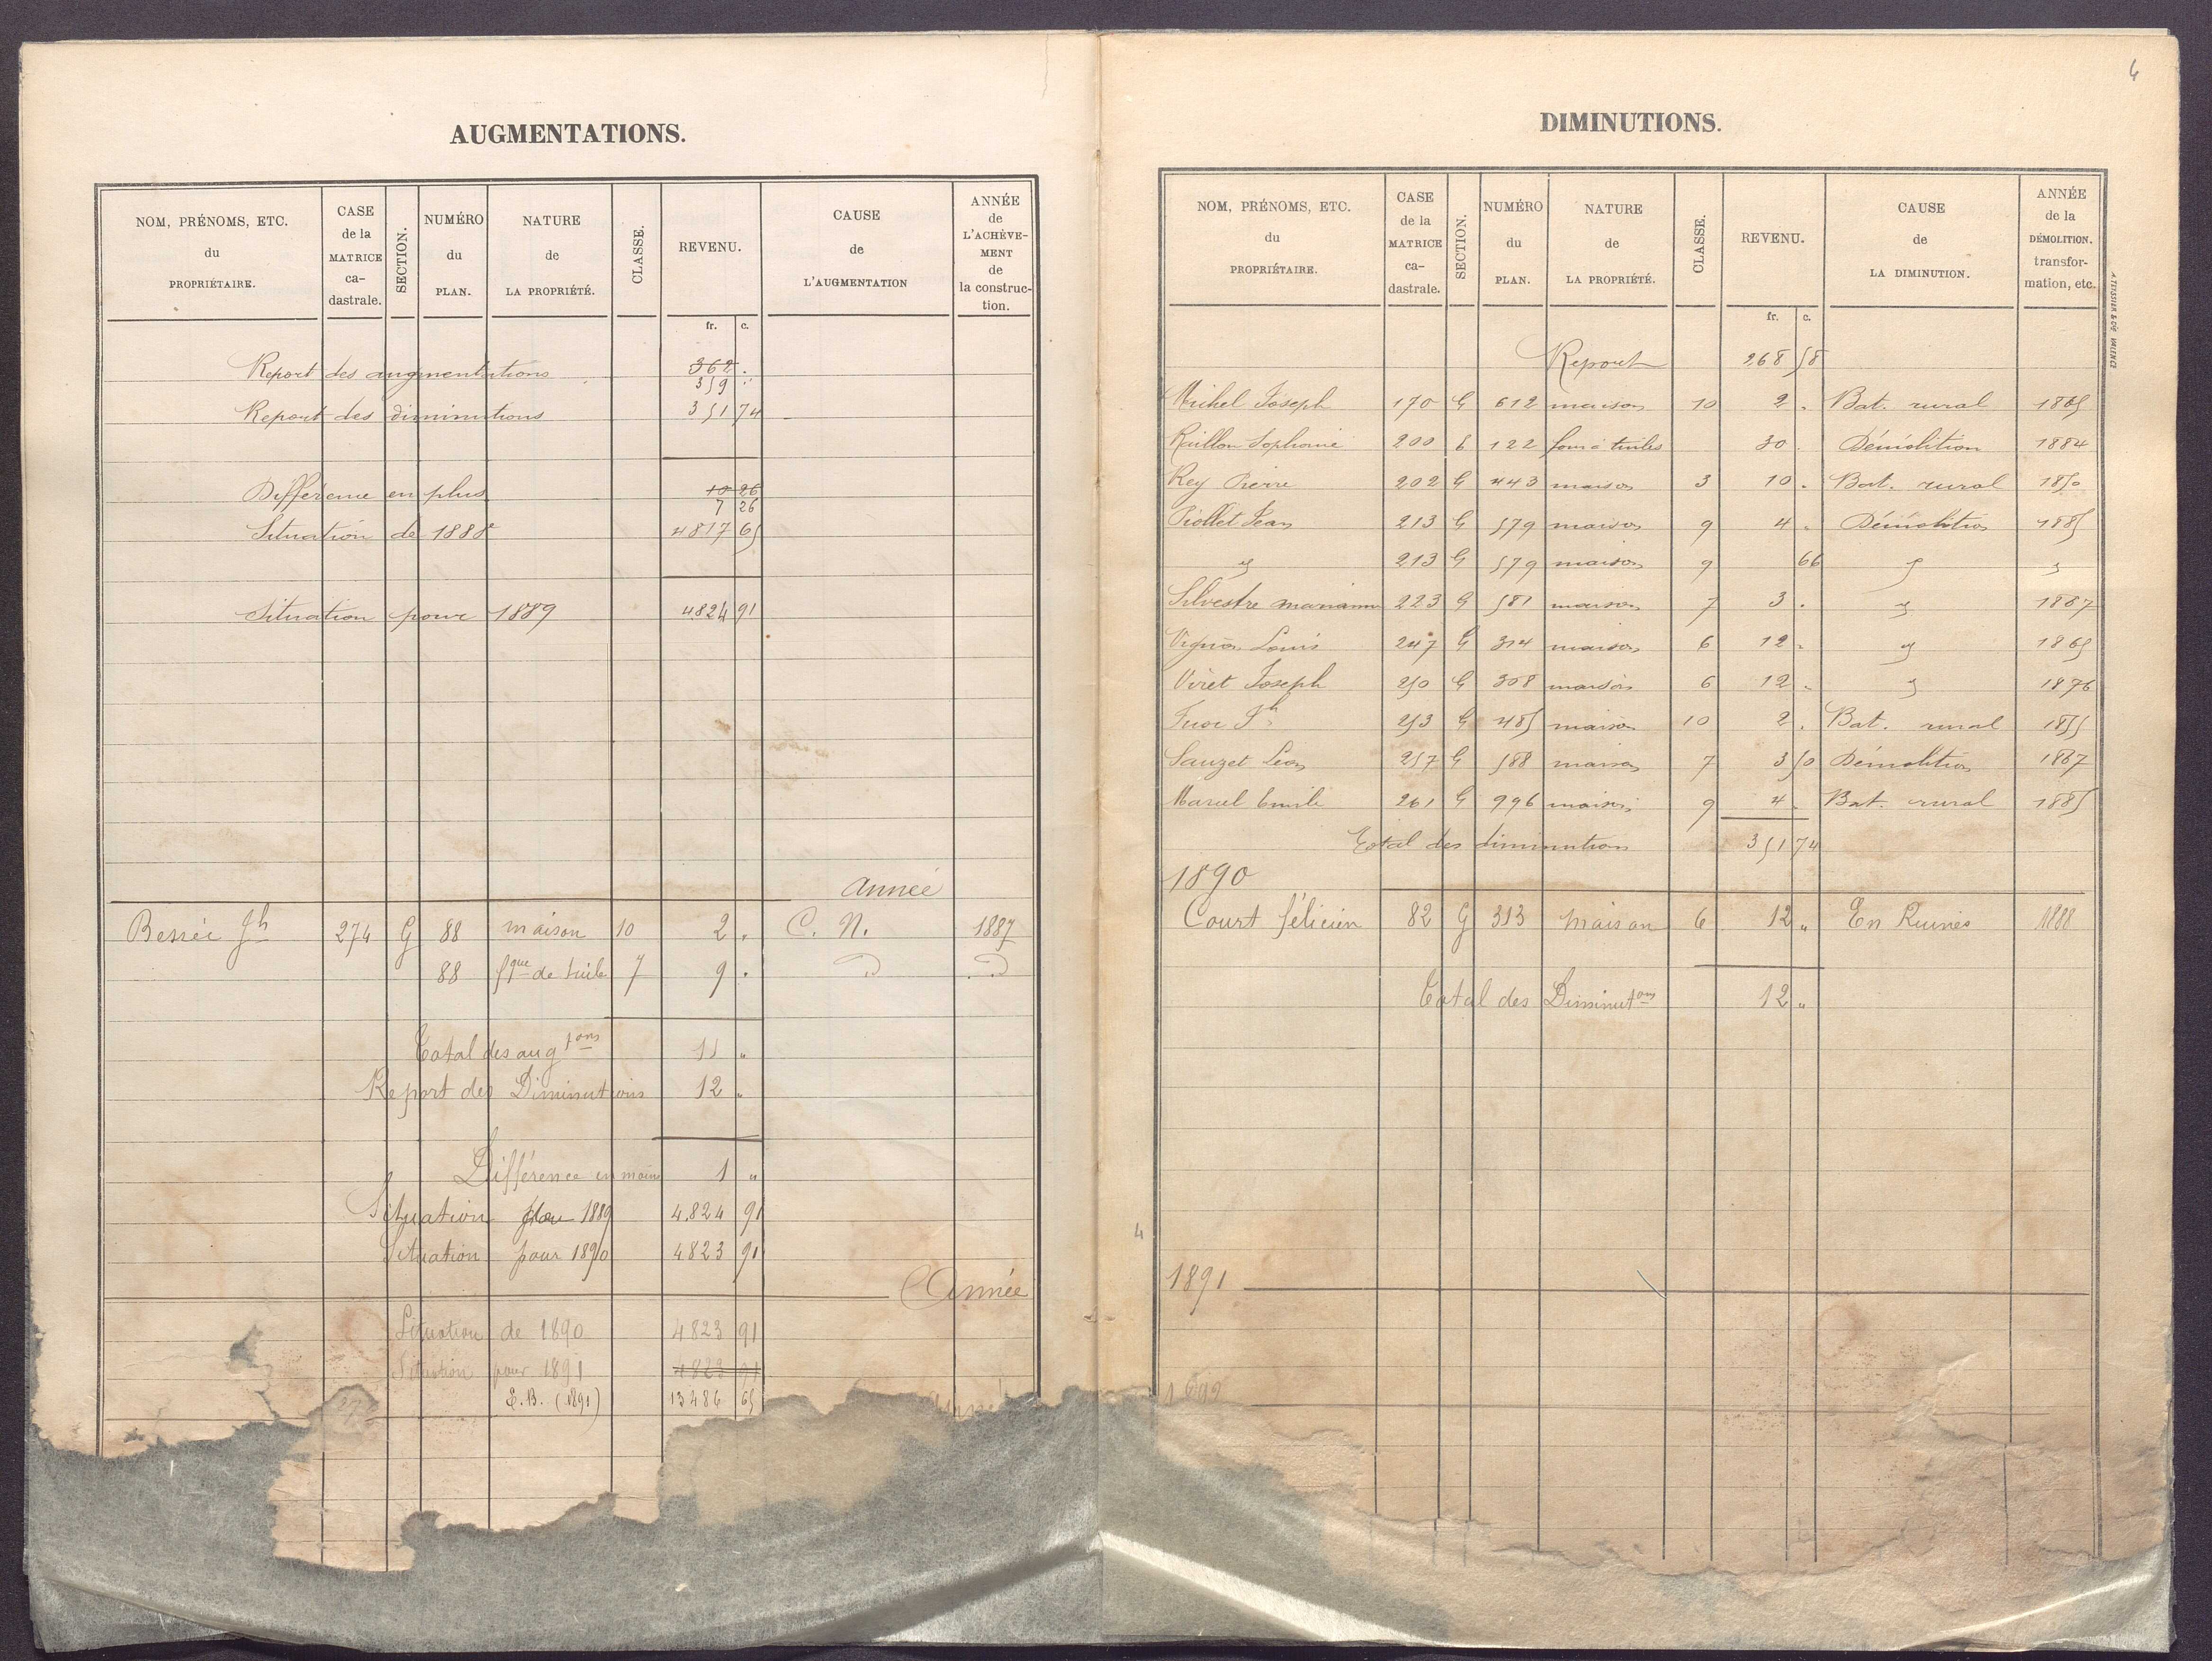 AUGMENTATIONS.
NOM, PRÉNOMS, ETC. du PROPRIÉTAIRE.
CASE de la MATRICE ca-dastrale.
SECTION.
NUMÉRO du PLAN.
NATURE de LA PROPRIÉTÉ.
CLASSE.
REVENU.
CAUSE de L'AUGMENTATION
ANNÉE de L'ACHÈVE-MENT de la construc-tion.
fr. c.
Report des augmentations 362 .
359
Report des diminutions 351 74
Différence en plus 10 26
7 26
Situation de 1888 4817 65
Situation pour 1889 4824 91
année
Bessée Jh 274 G 88 maison 10 2 . C. N. 1887
88 fque de tuile 7 9 . D D
Total des augtons 11 "
Report des Diminutions 12 "
Différence en moins 1 "
Situation 1889 4.824 91
Situation pour 1890 4823 91
Année
Situation de 1890 4823 91
Situation pour 1891 4823 91
(1891) 13486 65
4
DIMINUTIONS.
NOM, PRÉNOMS, ETC. du PROPRIÉTAIRE.
CASE de la MATRICE ca-dastrale.
SECTION.
NUMÉRO du PLAN.
NATURE de LA PROPRIÉTÉ.
CLASSE.
REVENU.
CAUSE de LA DIMINUTION.
ANNÉE de la DÉMOLITION. transfor-mation, etc.
fr. c.
A. TEISSIER & CIE VALENCE
Report 268 58
Michel Joseph 170 G 612 maison 10 2 . Bat. rural 1865
Raillon Sophonie 200 122 four à tuiles 30 . Démolition 1884
Rey Pierre 202 G 443 maison 3 10 . Bat. rural 1850
Piollet Jean 213 G 579 maison 9 4 " Démolition 1885
213 G 579 maison 9 66
Silvestre marianne 223 G 581 maison 7 3 . 1887
Vignon Louis 247 G 314 maison 6 12 . 1865
Viret Joseph 250 G 308 maison 6 12 . 1876
253 G 485 maison 10 2 . Bat. rural 1855
Sauzet Léon 257 G 588 maison 7 3 50 Démolition 1887
Marcel Emile 261 G 996 maison 9 4 . Bat. rural 1885
Total des diminutions 351 74
1890
Court félicien 82 G 313 Maison 6 12 " En Ruines 1888
Total des Diminutons 12 "
4
1891
1892